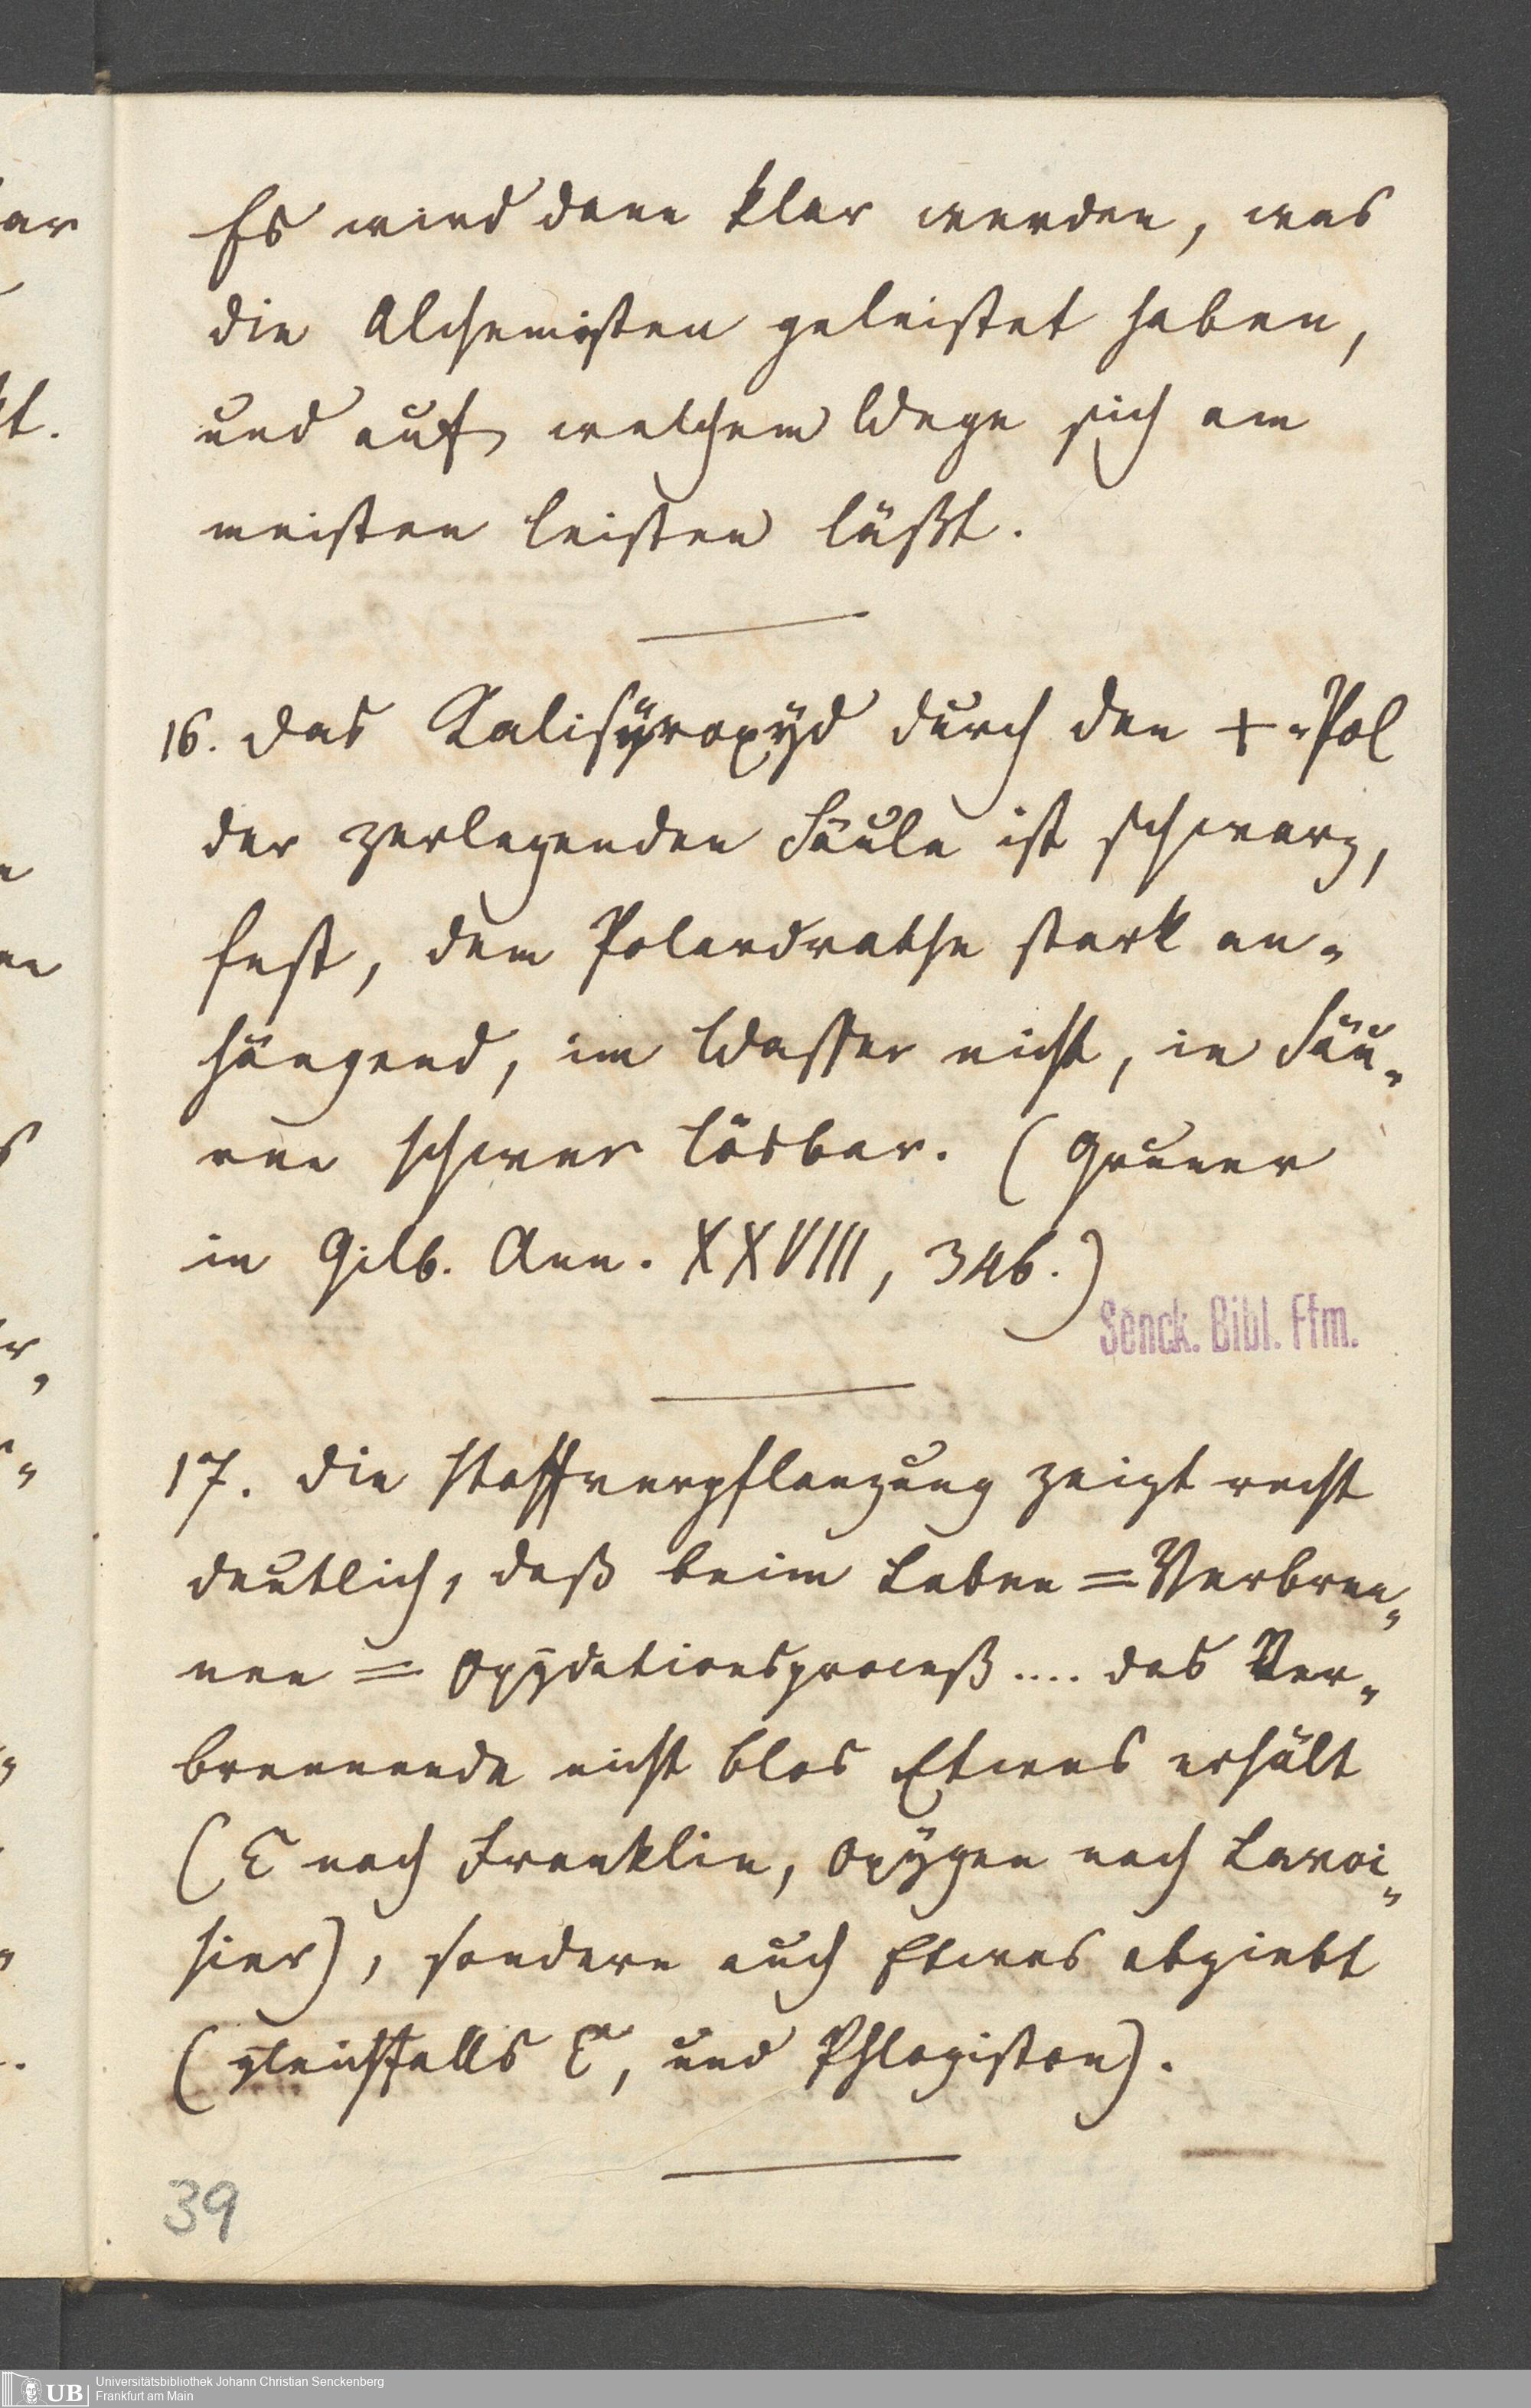 Es wird dann klar werden, was
die Alchemisten geleistet haben,
und auf welchem Wege sich am
meisten leisten läßt.
16. Das Kalihÿroxÿd durch den + Pol
der zerlegenden Säule ist schwarz,
fest, dem Polardrathe stark an-
hängend, im Wasser nicht, in Säu-
ren schwer lösbar. (Gruner
in Gilb. Ann. XXVIII, 346.)
Senck. Bibl. Ffm.
17. Die Stoffverpflanzung zeigt recht
deutlich, daß beim Leben = Verbren-
nen = Oxÿdationsproceß .... das Ver-
brennende nicht blos Etwas erhält
(E nach Franklin, Oxÿgen nach Lavoi-
sier), sondern auch Etwas abgiebt
(gleichfalls E, und Phlogiston).
39
UB Universitätsbibliothek Johann Christian Senckenberg
Frankfurt am Main